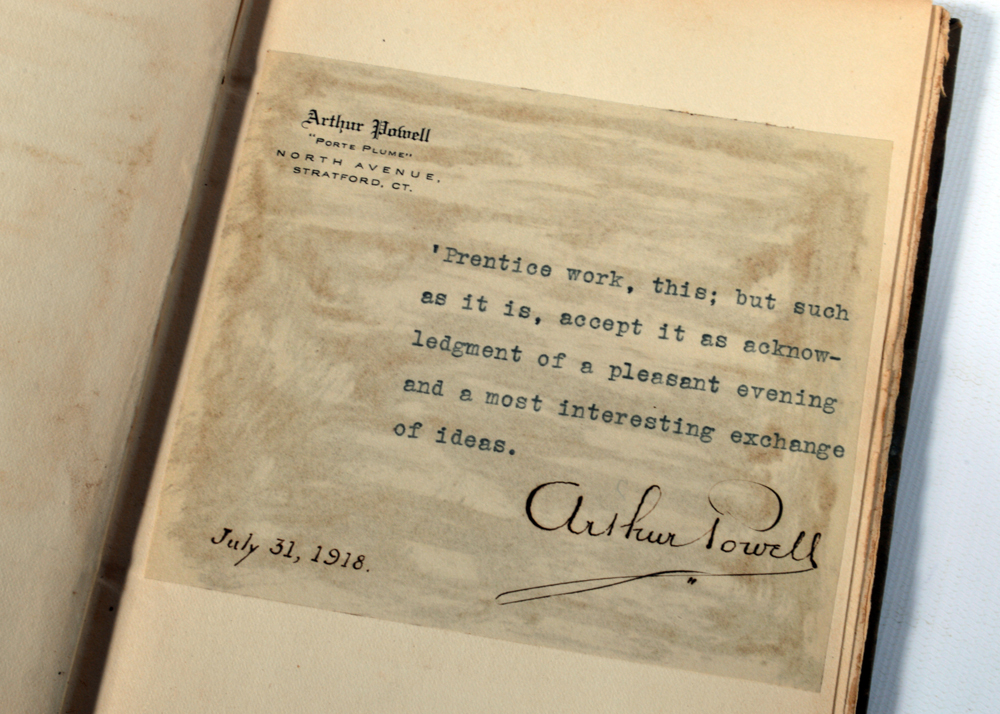 Arthur Powell
"PORTE PLUME"
NORTH AVENUE,
STRATFORD, CT.
'Prentice work, this; but such
as it is, accept it as acknow-
ledgment of a pleasant evening
and a most interesting exchange
of ideas.
Arthur Powell
July 31, 1918.